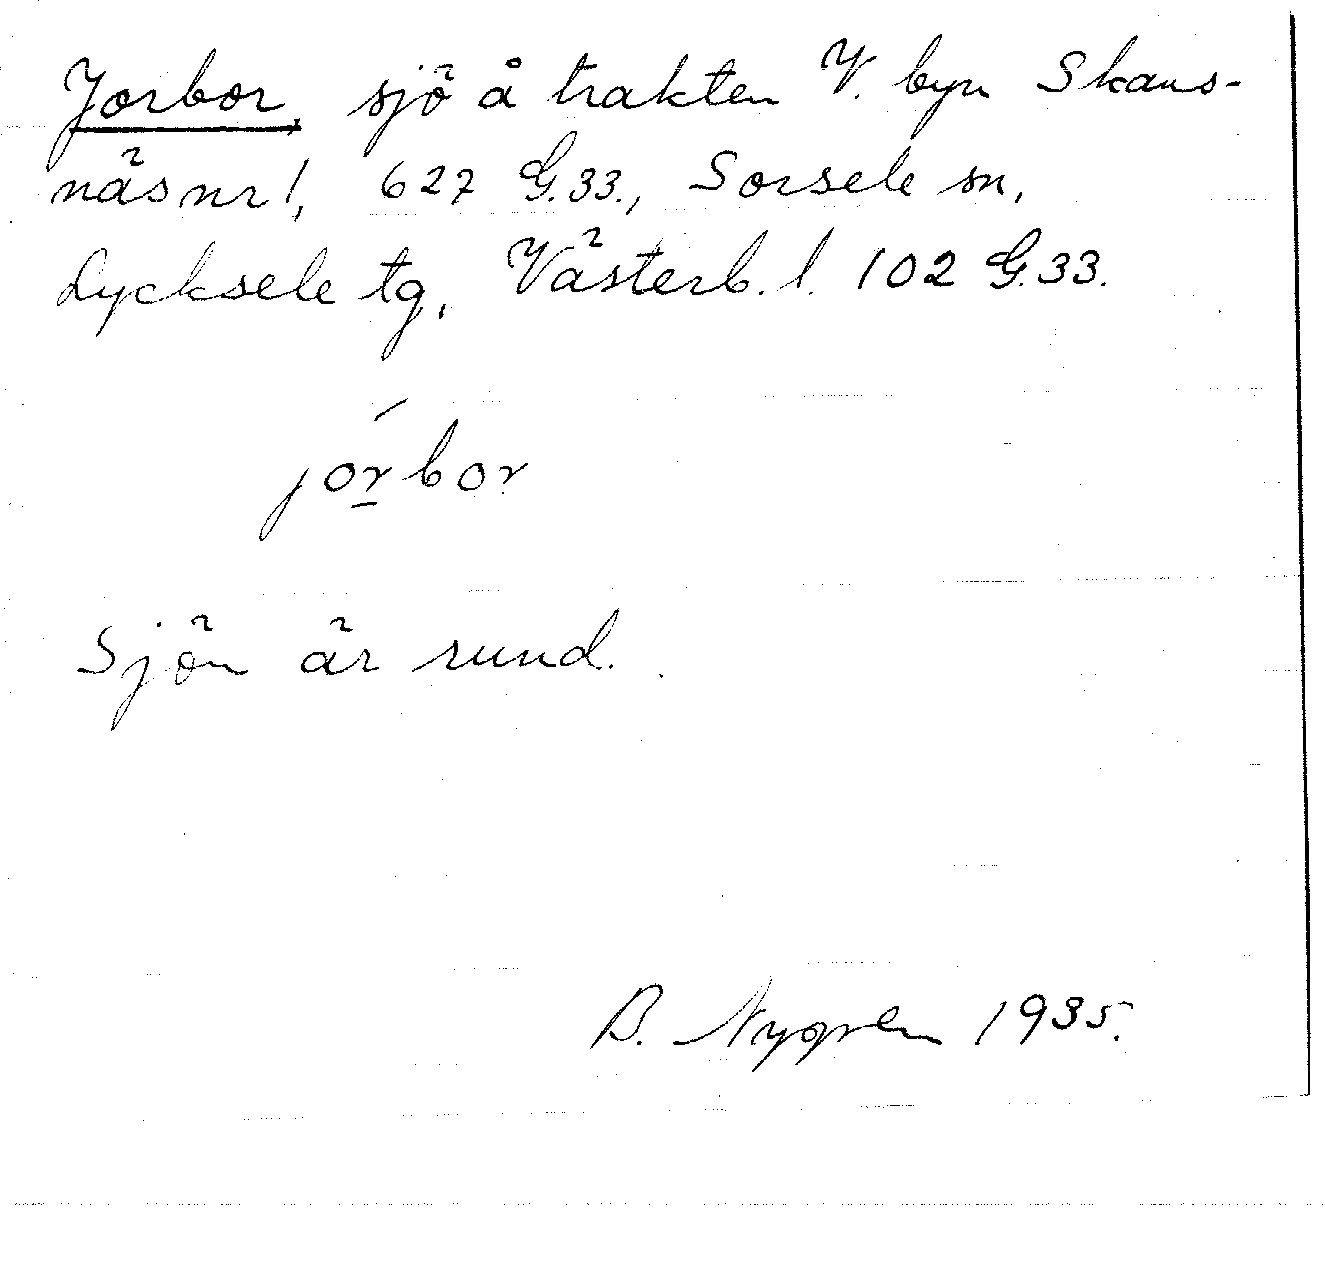 Jorbor, sjö å trakten V. byn Skans-
näs nr 1, 627 G.33., Sorsele sn,
Lycksele tg, Västerb. l. 102 G.33.
jorbor
Sjön är rund.
B. Nygren 1935.